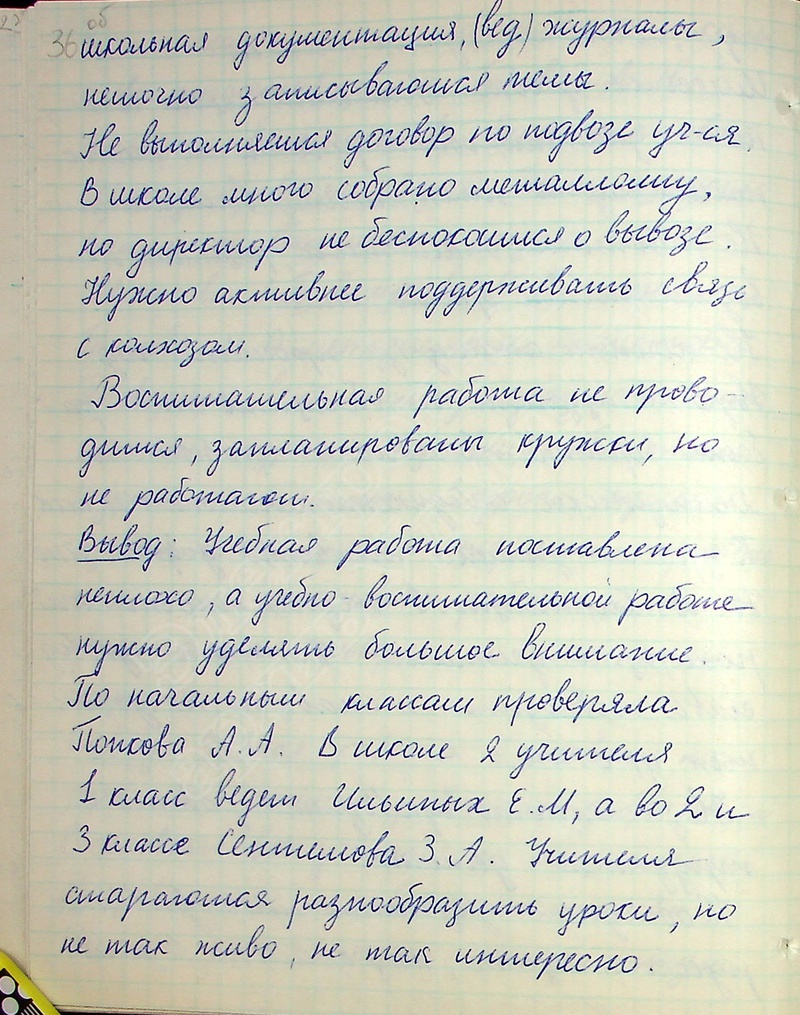 36 об
школьная документация, (вед) журналы,
неточно записываются темы.
Не выполняется договор по подвозе уч-ся.
В школе много собрано металлолому,
но директор не беспокоится о вывозе.
Нужно активнее поддерживать связь
с колхозом.
Воспитательная работа не прово-
дится, запланированы кружки, но
не работают.
Вывод: Учебная работа поставлена
неплохо, а учебно-воспитательной работе
нужно уделять большое внимание.
По начальным классам проверяла
Попкова А.А. В школе 2 учителя
1 класс ведет Ильиных Е.М, а во 2 и
3 классе Сентемова З.А. Учителя
стараются разнообразить уроки, но
не так живо, не так интересно.